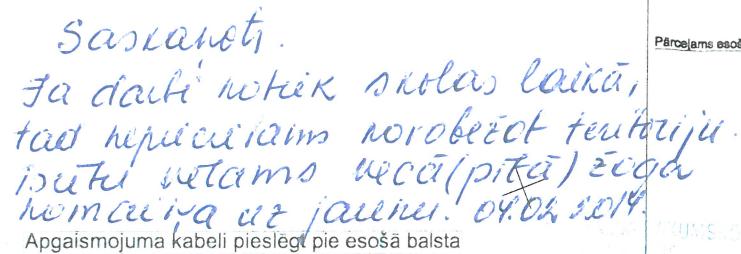 Saskaņots.
Pārceļams esoš
Ja darbi notiek skolas laikā,
tad nepieciešams norobežot teritoriju.
būtu vēlams vecā (pītā) žoga
nomaiņa uz jaunu. 04.02 2014.
Apgaismojuma kabeli pieslēgt pie esošā balsta